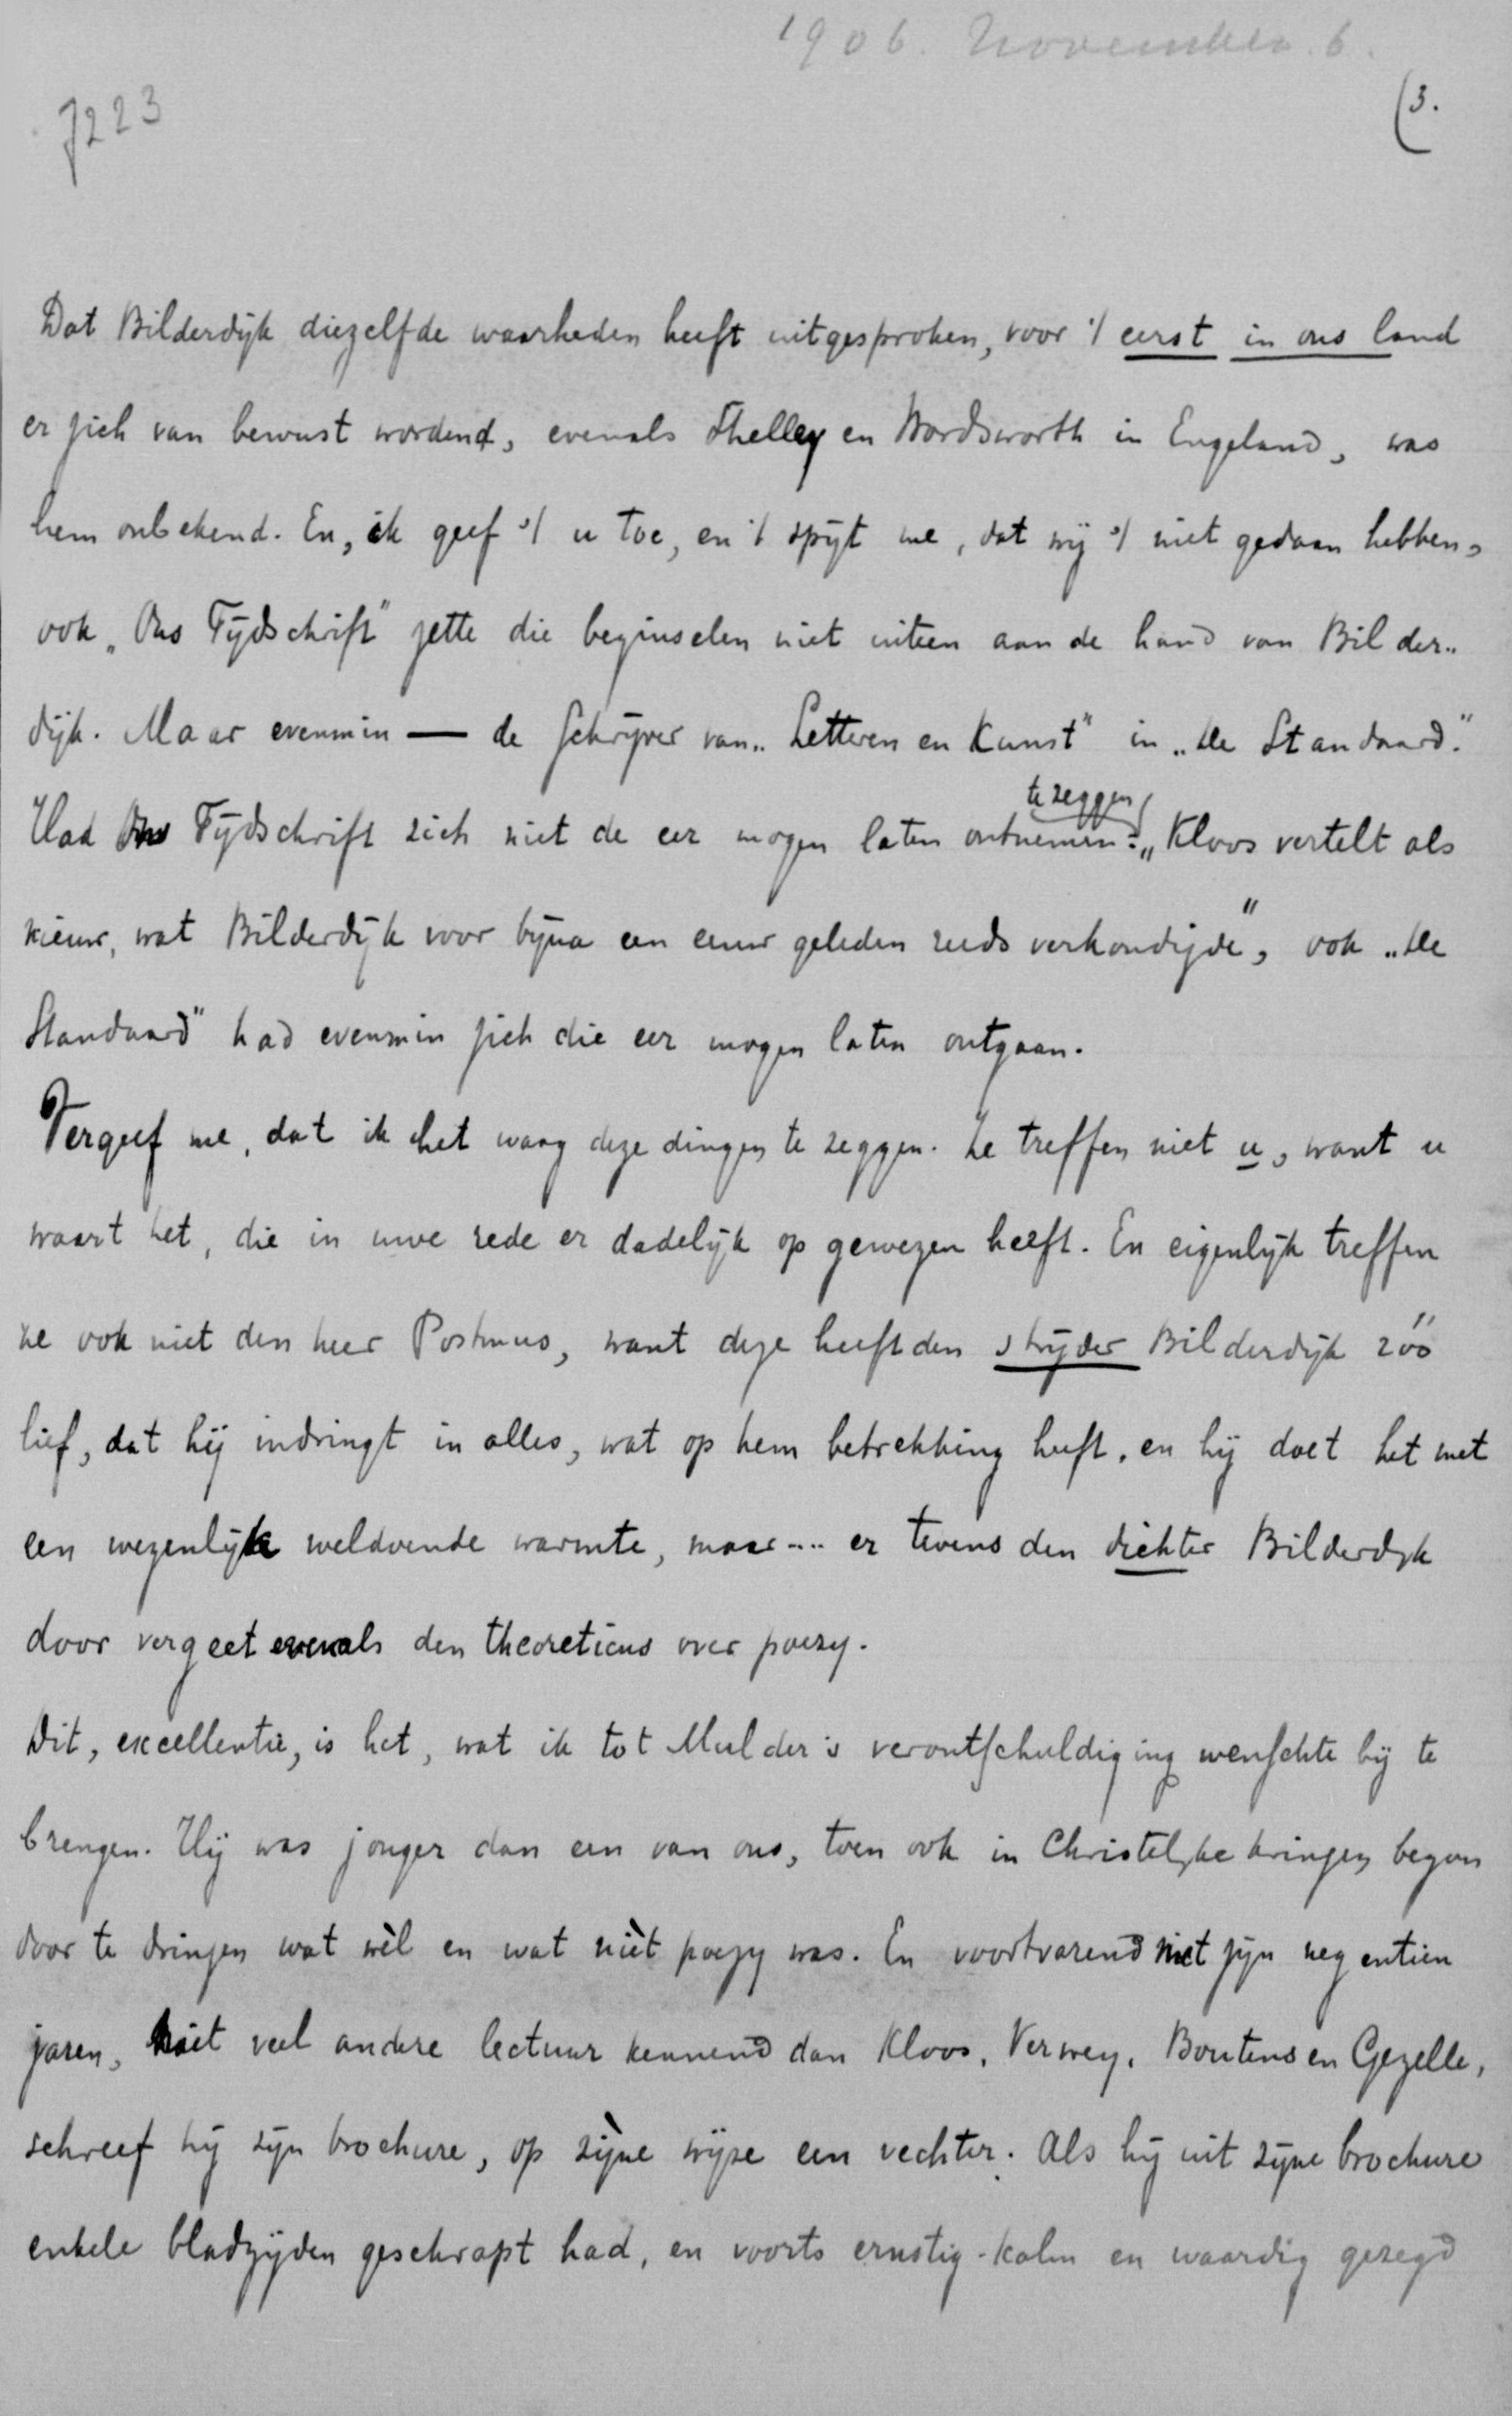 1906. November. 6.
7223
(3.
Dat Bilderdijk diezelfde waarheden heeft uitgesproken, voor 't eerst in ons land
er zich van bewust wordend, evenals Shelley en Wordsworth in Engeland, was
hem onbekend. En, ik geef 't u toe, en 't spijt me, dat wij 't niet gedaan hebben,
ook „Ons Tijdschrift" zette die beginselen niet uiteen aan de hand van Bilder„
dijk. Maar evenmin — de schrijver van „Letteren en Kunst" in „De Standaard."
te zeggen
Had Ons Tijdschrift zich niet de eer mogen laten ontnemen: „Kloos vertelt als
nieuw, wat Bilderdijk voor bijna een eeuw geleden reeds verkondigde", ook „De
Standaard" had evenmin zich die eer mogen laten ontgaan.
Vergeef me, dat ik het waag deze dingen te zeggen. Ze treffen niet u, want u
waart het, die in uwe rede er dadelijk op gewezen heeft. En eigenlijk treffen
ze ook niet den heer Postmus, want deze heeft den strijder Bilderdijk zóó
lief, dat hij indringt in alles, wat op hem betrekking heeft, en hij doet het met
een wezenlijk weldoende warmte, maar.... er tevens den dichter Bilderdijk
door vergeet evenals den theoreticus over poezy.
Dit, excellentie, is het, wat ik tot Mulder's verontschuldiging wenschte bij te
brengen. Hij was jonger dan een van ons, toen ook in Christelijke kringen begon
door te dringen wat wèl en wat nièt poezy was. En voortvarend met zijn negentien
jaren, niet veel andere lectuur kennend dan Kloos, Verwey, Boutens en Gezelle,
schreef hij zijn brochure, op zìjne wijze een vechter. Als hij uit zijne brochure
enkele bladzijden geschrapt had, en voorts ernstig-kalm en waardig gezegd